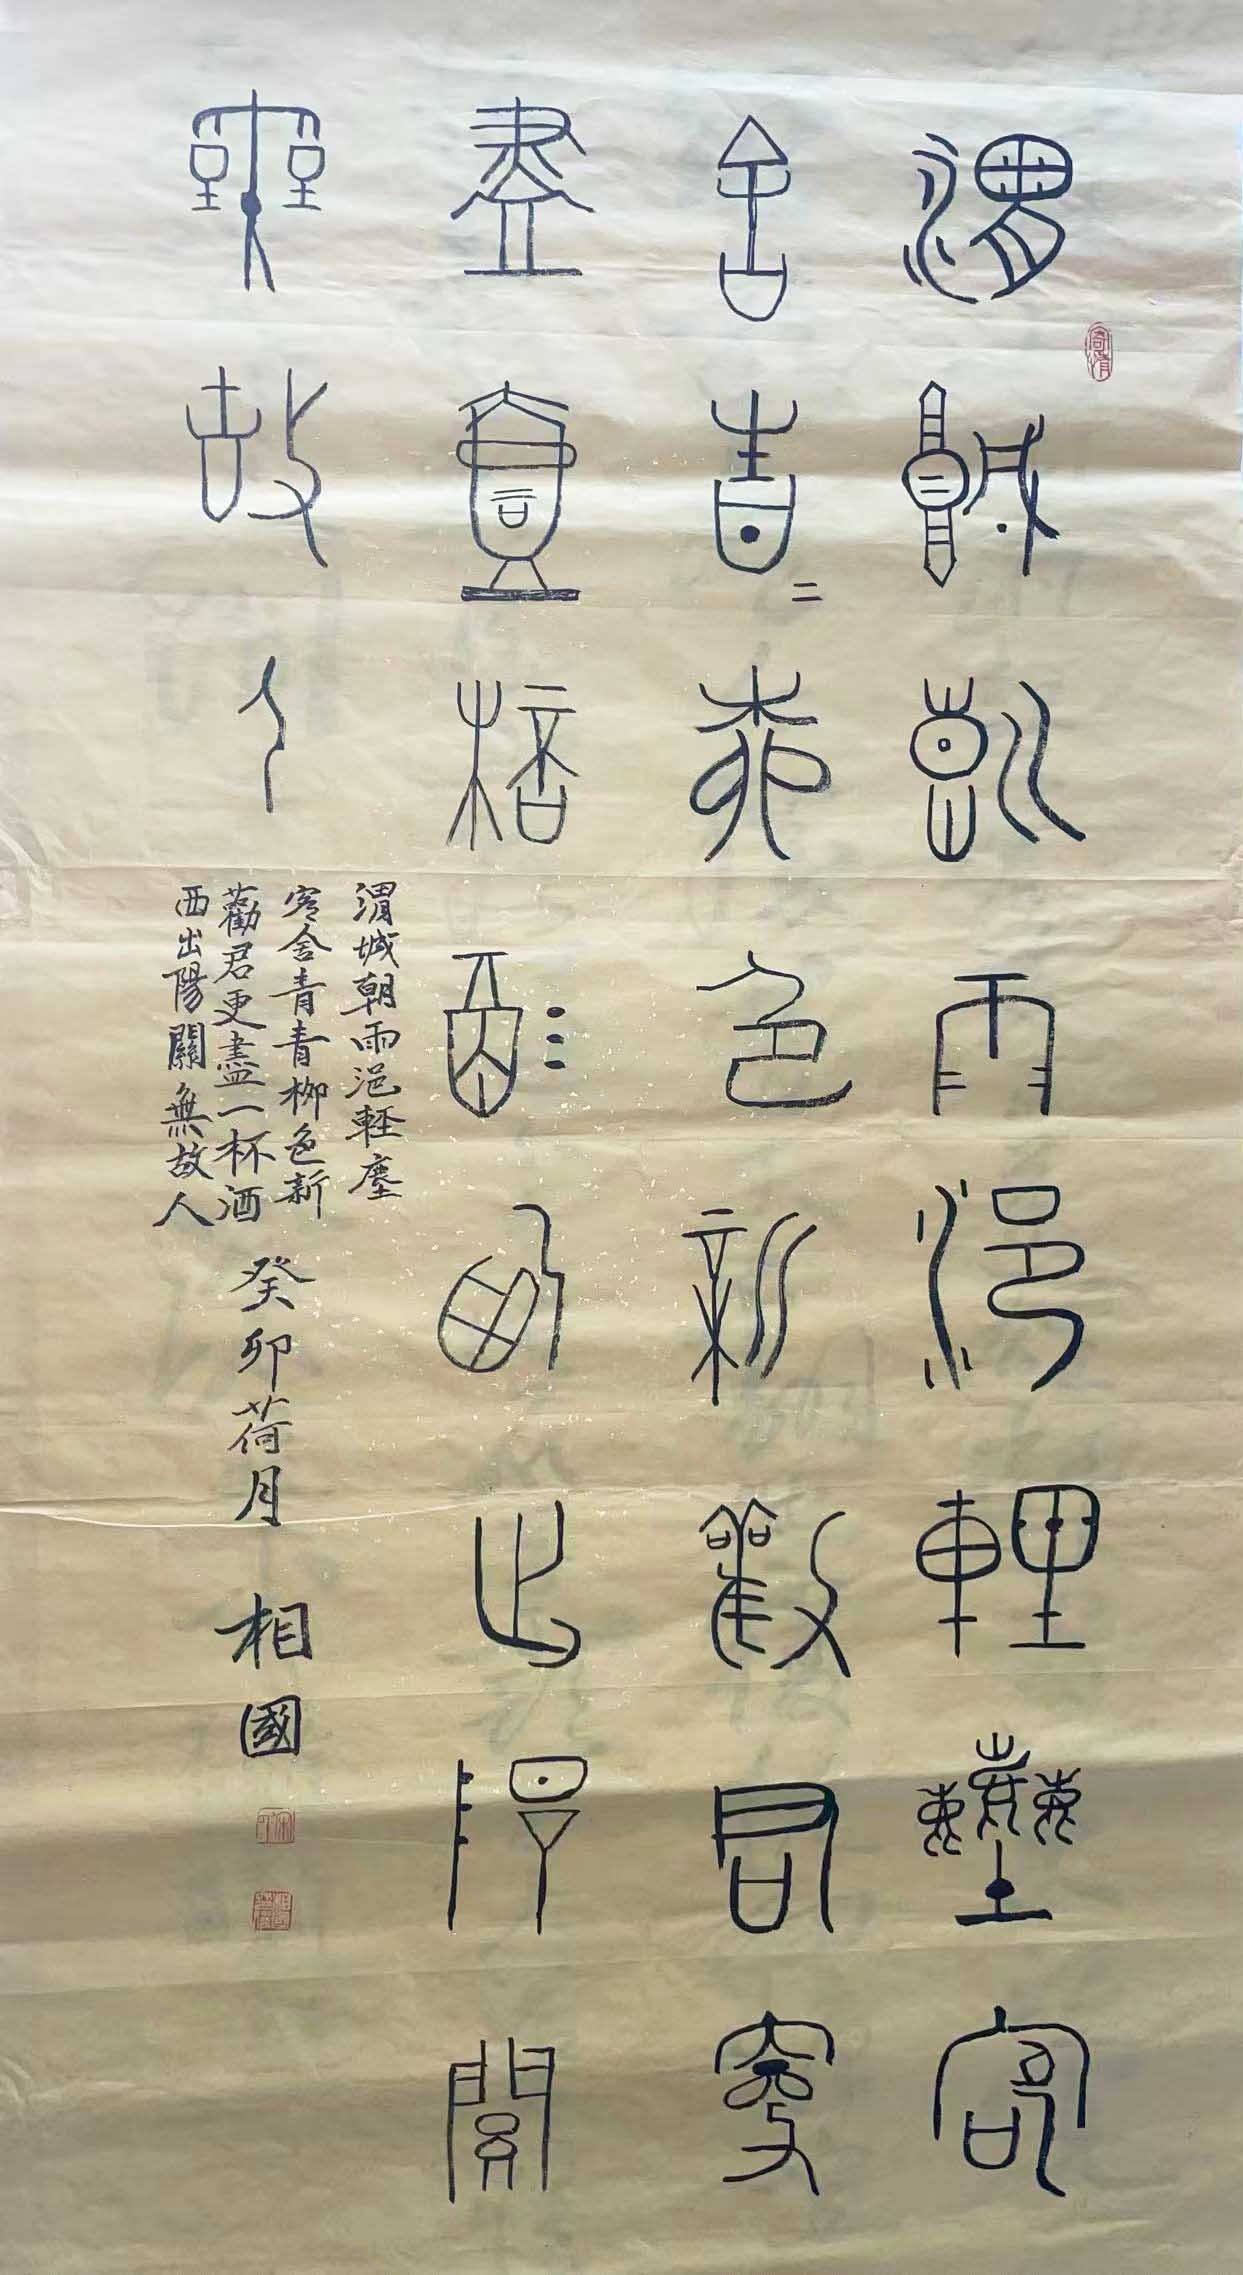 渭城朝雨浥輕塵客
舍青〻柳色新勸君更
盡壹杯酒西出陽關
無故人
渭城朝雨浥輕塵
客舍青青柳色新
勸君更盡一杯酒
西出陽關無故人
癸卯荷月 相國
寄情